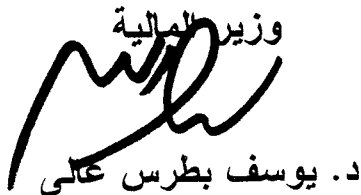 وزير المالية
د. يوسف بطرس غالى